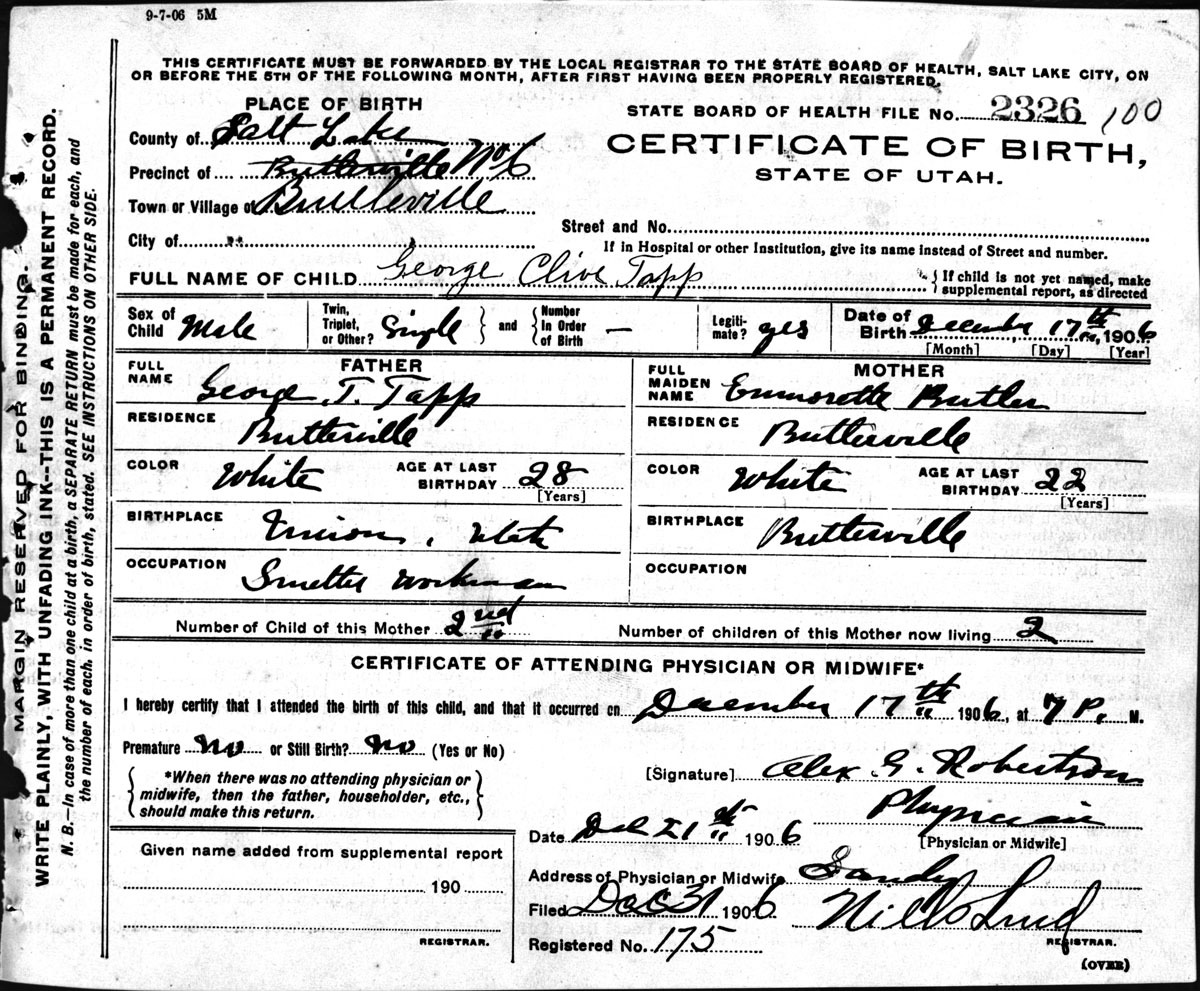 9-7-06 5M
THIS CERTIFICATE MUST BE FORWARDED BY THE LOCAL REGISTRAR TO THE STATE BOARD OF HEALTH, SALT LAKE CITY, ON
OR BEFORE THE 5TH OF THE FOLLOWING MONTH, AFTER FIRST HAVING BEEN PROPERLY REGISTERED.
PLACE OF BIRTH
STATE BOARD OF HEALTH FILE No. 2326 100
County of Salt Lake
CERTIFICATE OF BIRTH,
Precinct of Butlerville No 6
STATE OF UTAH.
Town or Village of Butlerville
Street and No.
City of
If in Hospital or other Institution, give its name instead of Street and number.
FULL NAME OF CHILD George Clive Tapp
If child is not yet named, make
supplemental report, as directed
Sex of Child Male
Twin, Triplet, or Other? Single and Number In Order of Birth —
Legitimate? yes
Date of Birth December 17th, 1906
[Month] [Day] [Year]
FATHER
FULL NAME George T. Tapp
RESIDENCE Butlerville
COLOR White AGE AT LAST BIRTHDAY 28
[Years]
BIRTHPLACE Union, Utah
OCCUPATION Smelter Workman
MOTHER
FULL MAIDEN NAME Emmorette Butler
RESIDENCE Butlerville
COLOR White AGE AT LAST BIRTHDAY 22
[Years]
BIRTHPLACE Butlerville
OCCUPATION
Number of Child of this Mother 2nd Number of children of this Mother now living 2
CERTIFICATE OF ATTENDING PHYSICIAN OR MIDWIFE*
I hereby certify that I attended the birth of this child, and that it occurred on December 17th 1906, at 7 P. M.
Premature No or Still Birth? No (Yes or No)
*When there was no attending physician or
midwife, then the father, householder, etc.,
should make this return.
[Signature] Alex. G. Robertson
Physician
[Physician or Midwife]
Date Dec 21st 1906
Address of Physician or Midwife Sandy
Filed Dec 31 1906
REGISTRAR.
Registered No. 175
(OVER)
Given name added from supplemental report
190
REGISTRAR.
MARGIN RESERVED FOR BINDING.
WRITE PLAINLY, WITH UNFADING INK--THIS IS A PERMANENT RECORD.
N. B.—In case of more than one child at a birth, a SEPARATE RETURN must be made for each, and
the number of each, in order of birth, stated. SEE INSTRUCTIONS ON OTHER SIDE.